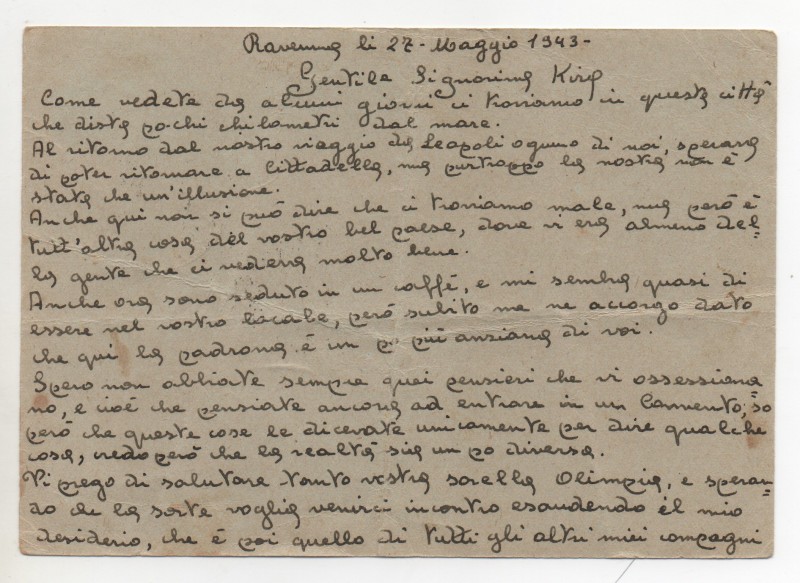 Ravenna li 27 - Maggio 1943 -
Gentile Signorina Kira
Come vedete da alcuni giorni ci troviamo in questa città
che dista po-chi chilometri dal mare.
Al ritorno dal nostro viaggio da Leopoli ognuno di noi, sperava
di poter ritornare a Cittadella, ma purtroppo la nostra non è
stata che un'illusione.
Anche qui non si può dire che ci troviamo male, ma però è
tutt'altra cosa del vostro bel paese, dove vi era almeno del=
la gente che ci vedeva molto bene.
Anche ora sono seduto in un caffé, e mi sembra quasi di
essere nel vostro locale, però subito me ne accorgo dato
che qui la padrona è un po più anziana di voi.
Spero non abbiate sempre quei pensieri che vi ossessiona=
no, e cioé che pensiate ancora ad entrare in un Convento; so
però che queste cose le dicevate unicamente per dire qualche
cosa, credo però che la realtà sia un po diversa.
Vi prego di salutare tanto vostra sorella Olimpia, e speran=
do che la sorte voglia venirci incontro esaudendo il mio
desiderio, che è poi quello di tutti gli altri miei compagni